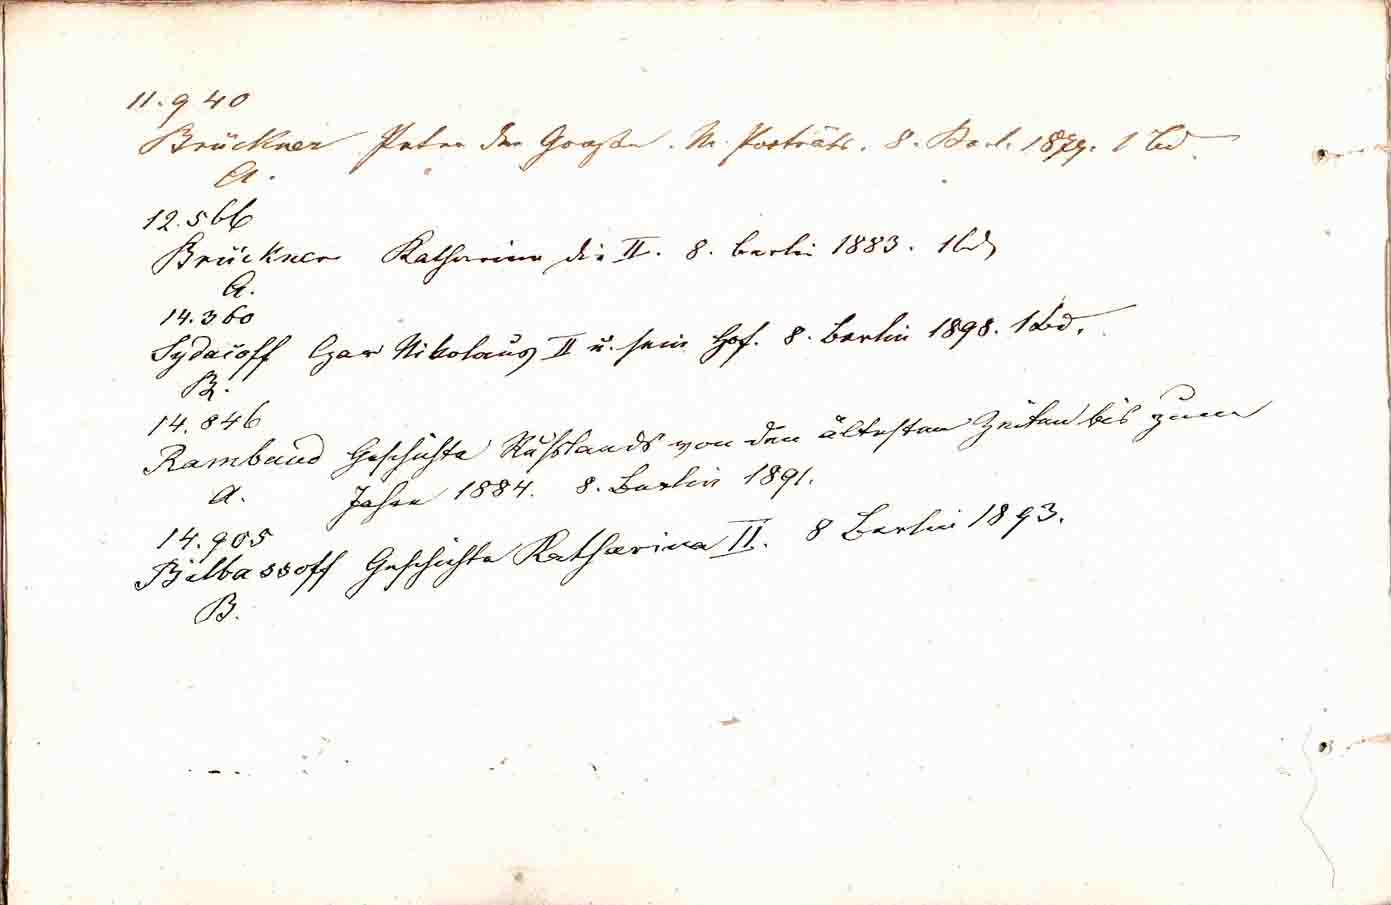 11.940
Brückner Peter der Große. M. Porträts. 8. Berl. 1879. 1 Bd.
A.
12.566
Brückner Katharina die II. 8. Berlin 1883. 1 Bd.
A.
14.360
Sydacoff Czar Nikolaus II u. sein Hof. 8. Berlin 1898. 1 Bd.
B.
14.846
Rambaud Geschichte Rußlands von den ältesten Zeiten bis zum
A. Jahre 1884. 8. Berlin 1891.
14.905
Bilbassoff Geschichte Katharina II. 8 Berlin 1893.
B.